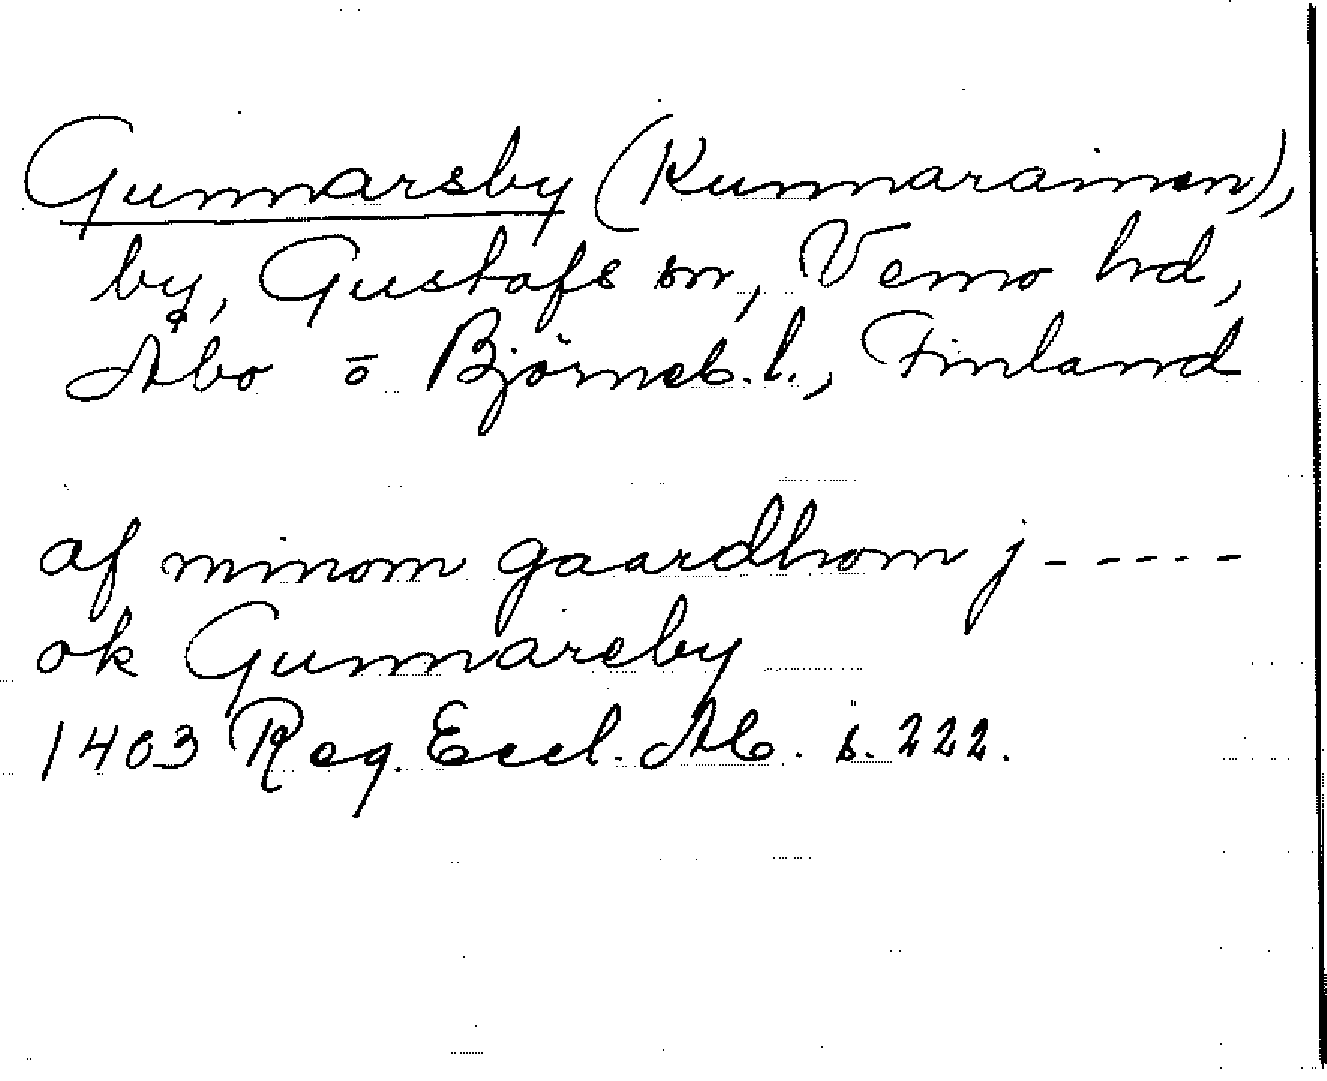 Gunnarsby (Kunnarainen),
by, Gustafs sn, Vemo hd,
Åbo o Björneb. l., Finland
af minom gaardhom j - - - - -
ok Gunnarsby
1403 Reg. Eccl. Ab. s. 222.